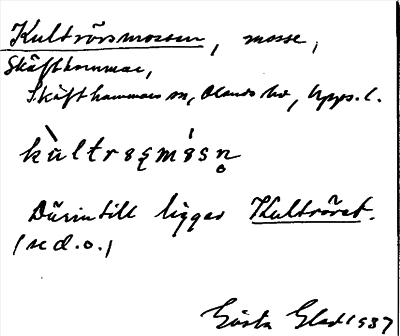 Kultrörsmossen, mosse,
Skäfthammar,
Skäfthammars sn, Olands hd, Upps. l.
Därintill ligger Kultröret.
(se d.o.)
Gösta Glad 1937